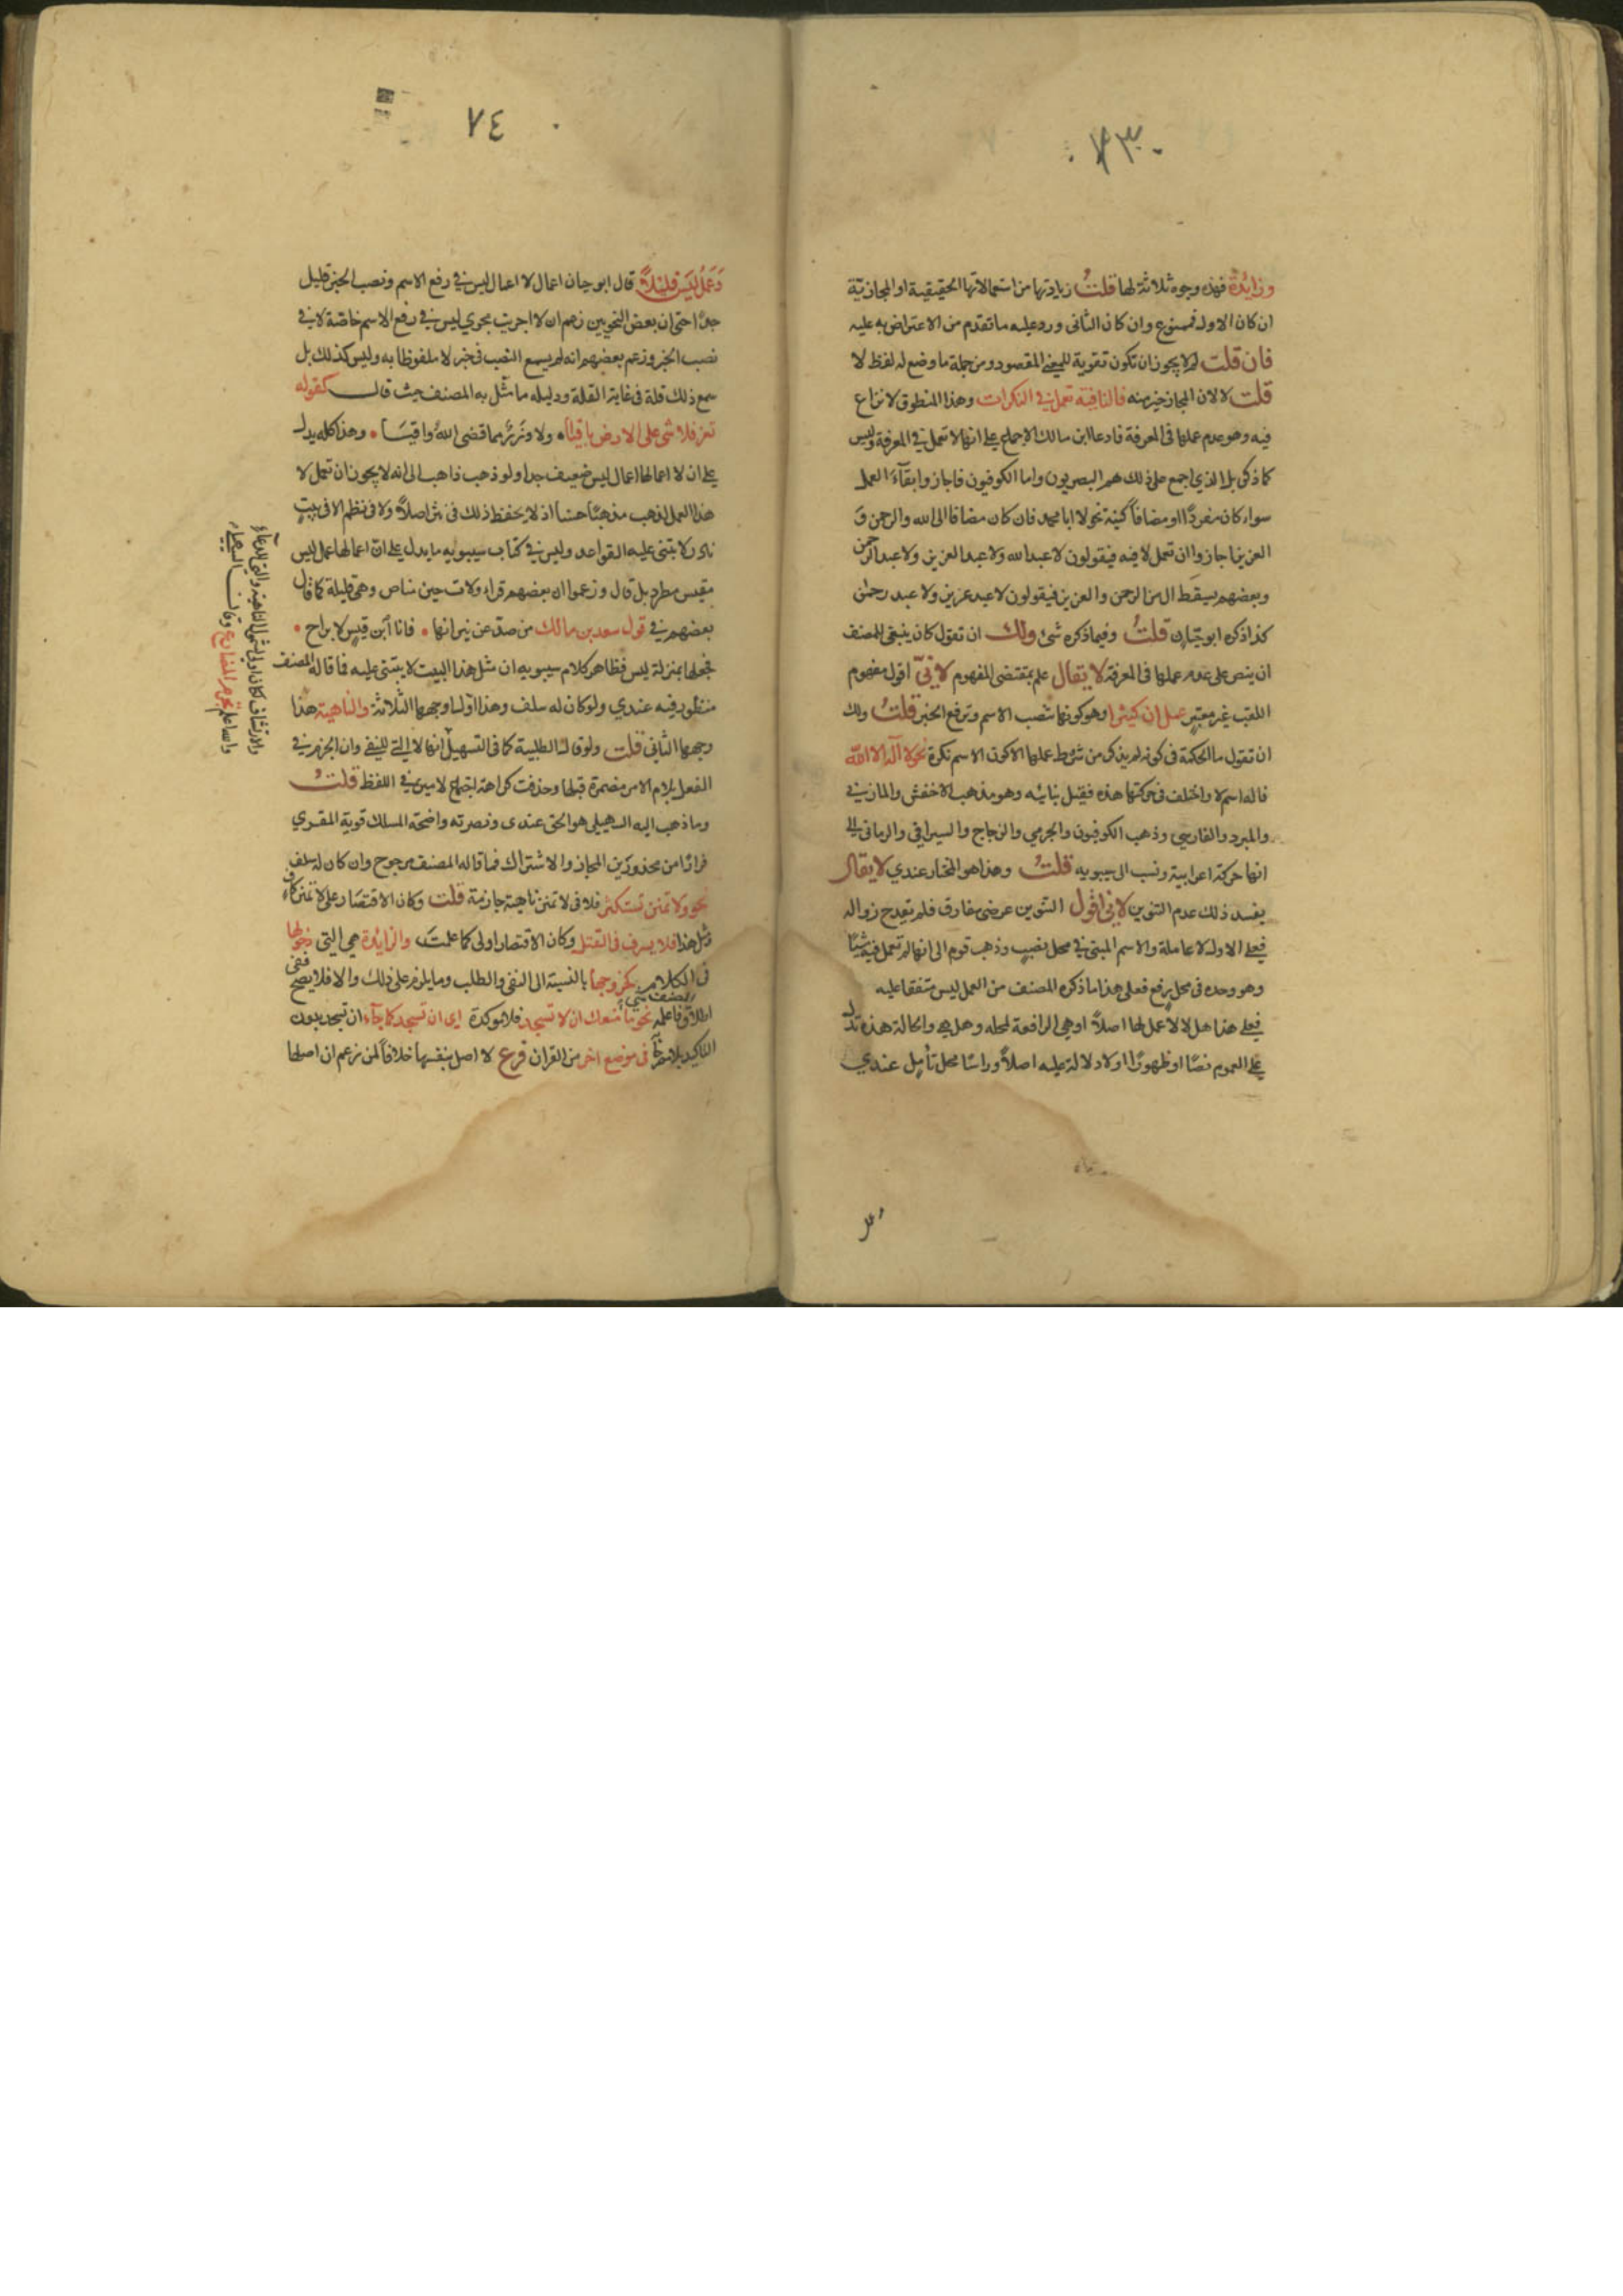 ٧٣
وزائدة فهذه وجوه ثلاثة لها قلت زيادتها من استعمالاتها الحقيقية او المجازية
ان كان الاول فممنوع وان كان الثانى ورد عليه ما تقدم من الاعتراض به عليه
فان قلت لم لا يجوز ان تكون تقوية للمعنى المقصود ومن جملة ما وضع له لفظ لا
قلت لا لان المجاز خير منه فالنافية تعمل في النكرات وهذا المنطوق لا نزاع
فيه وهو عدم عملها فى المعرفة فادعا ابن مالك الاجماع على انها لا تعمل في المعرفة وليس
كما ذكر بل الذي اجمع على ذلك هم البصريون واما الكوفيون فاجازوا ابقاء العمل
سواء كان مفردًا او مضافًا كنية نحو لا ابا محمد فان كان مضافا الى الله والرحمن و
العزيز اجازوا ان تعمل لا فيه فيقولون لا عبد الله ولا عبد العزيز ولا عبد الرحمن
وبعضهم يسقط ال من الرحمن والعزيز فيقولون لا عبد عزيز ولا عبد رحمن
كذا ذكره ابو حيان قلت وفيما ذكره شئ ولك ان تقول كان ينبغى للمصنف
ان ينص على عدم عملها فى المعرفة لا يقال علم بمقتضى المفهوم لانى اقول مفهوم
اللقب غير معتبر عمل ان كثيرا وهو كونها تنصب الاسم وترفع الخبر قلت ولك
ان تقول ما الحكمة فى كونه لم يذكر من شرط عملها الا كون الاسم نكرة نحو لا اله الا الله
فاله اسم لا واختلف فى حركتها هذه فقيل بنائه وهو مذهب الاخفش والمازني
والمبرد والفارسي وذهب الكوفيون والجرمي والزجاج والسيرافي والرمانى الى
انها حركة اعرابية ونسب الى سيبويه قلت وهذا هو المختار عندي لا يقال
يفسد ذلك عدم التنوين لانى اقول التنوين عرضى مفارق فلم يقدح زواله
فعلى الاول لا عاملة والاسم المبنى في محل نصب وذهب قوم الى انها لم تعمل فيه شيئا
وهو وحده فى محل رفع فعلى هذا ما ذكره المصنف من العمل ليس متفقا عليه
فعلى هذا هل لا لا عمل لها اصلاً او هي الرافعة لمحله وهل هي والحالة هذه تدل
على العموم نصًا او ظهورًا او لا دلالة عليه اصلاً وراسًا محل تأمل عندي
وعمل
٧٤
وعمل ليس قليلاً قال ابو حيان اعمال لا اعمال ليس في رفع الاسم ونصب الخبر قليل
جدًا حتى ان بعض النحويين زعم ان لا اجريت مجرى ليس في رفع الاسم خاصة لا في
نصب الخبر وزعم بعضهم انه لم يسمع النصب فى خبر لا ملفوظا به وليس كذلك بل
سمع ذلك قلة فى غاية القلة ودليله ما مثل به المصنف حيث قال كقوله
تعز فلا شئ على الارض باقيا ولا وزر مما قضى الله واقيا وهذا كله يدل
على ان لا اعمالها اعمال ليس ضعيف جدا ولو ذهب ذاهب الى انه لا يجوز ان تعمل لا
هذا العمل لذهب مذهبًا حسنا اذ لا يحفظ ذلك فى نثر اصلاً ولا فى نظم الا فى بيت
نادر لا يبتنى عليه القواعد وليس في كتاب سيبويه ما يدل على ان اعمالها عمل ليس
مقيس مطرد بل قال وزعموا ان بعضهم قراء ولات حين مناص وهى قليلة كما قال
بعضهم في قول سعد بن مالك من صد عن نيرانها فانا ابن قيس لا براح
فجعلها بمنزلة ليس فظاهر كلام سيبويه ان مثل هذا البيت لا يبتنى عليه فما قاله المصنف
منظور فيه عندي ولو كان له سلف وهذا اول اوجهها الثلاثة والناهية هذا
وجهها الثانى قلت ولو قال الطلبية كما فى التسهيل انها لا التي للنفى وان الجزم في
الفعل بلام الامر مضمرة قبلها وحذفت كراهة اجتماع لامين في اللفظ قلت
وما ذهب اليه السهيلى هو الحق عندى ونصرته واضحة المسلك قوية المقري
فرارًا من محذورين المجاز والاشتراك فما قاله المصنف مرجوح وان كان له سلف
نحو ولا تمنن تستكثر فلا فى لا تمنن ناهية جازمة قلت وكان الاقتصار على لا تمنن كاف
ومثل هذا فلا يسرف فى القتل وكان الاقتصار اولى كما علمت والزائدة هي التى دخولها
فى الكلام كخروجها بالنسبة الى النفى والطلب وما يلزم على ذلك والا فلا يصح
اطلاق فاعله نحو ما منعك ان لا تسجد فلا مؤكدة اى ان تسجد كما جآء ان تسجد بدون
التاكيد بلا مصرحًا فى موضع اخر من القران فرع لا اصل بنفسها خلافًا لمن زعم ان اصلها
والارتشاف لكان اولى لشمولها الناهية والتى للدعاء